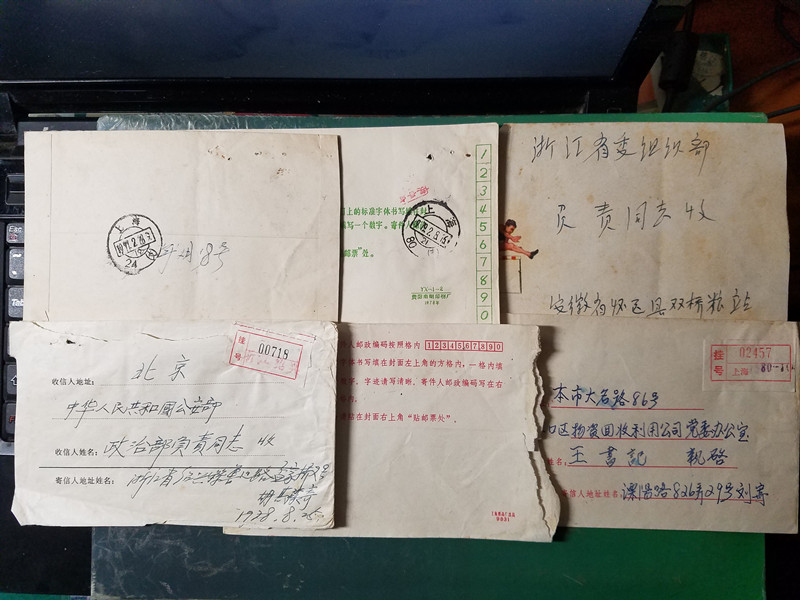 浙江省委组织部
负责同志收
安徽省怀远县双桥粮站
上海
24
18号
1
2
3
4
5
6
7
8
9
0
上海
80
邮票”处。
1978年
挂号
00718
北京
收信人地址:
中华人民共和国公安部
收信人姓名:
政治部负责同志 收
寄信人地址姓名:
浙江省
1978.8.25
件人邮政编码按照格内
1234567890
字体书写填在封面左上角的方格内,一格内填
字,字迹请写清晰,寄件人邮政编码写在右
内。
请贴在封面右上角“贴邮票处”。
挂号
02457
上海
本市大名路86号
口区物资回收利用公司党委办公室
姓名:
王书记 亲启
寄信人地址姓名:
溧阳路826弄29号刘寄
Esc
Tab